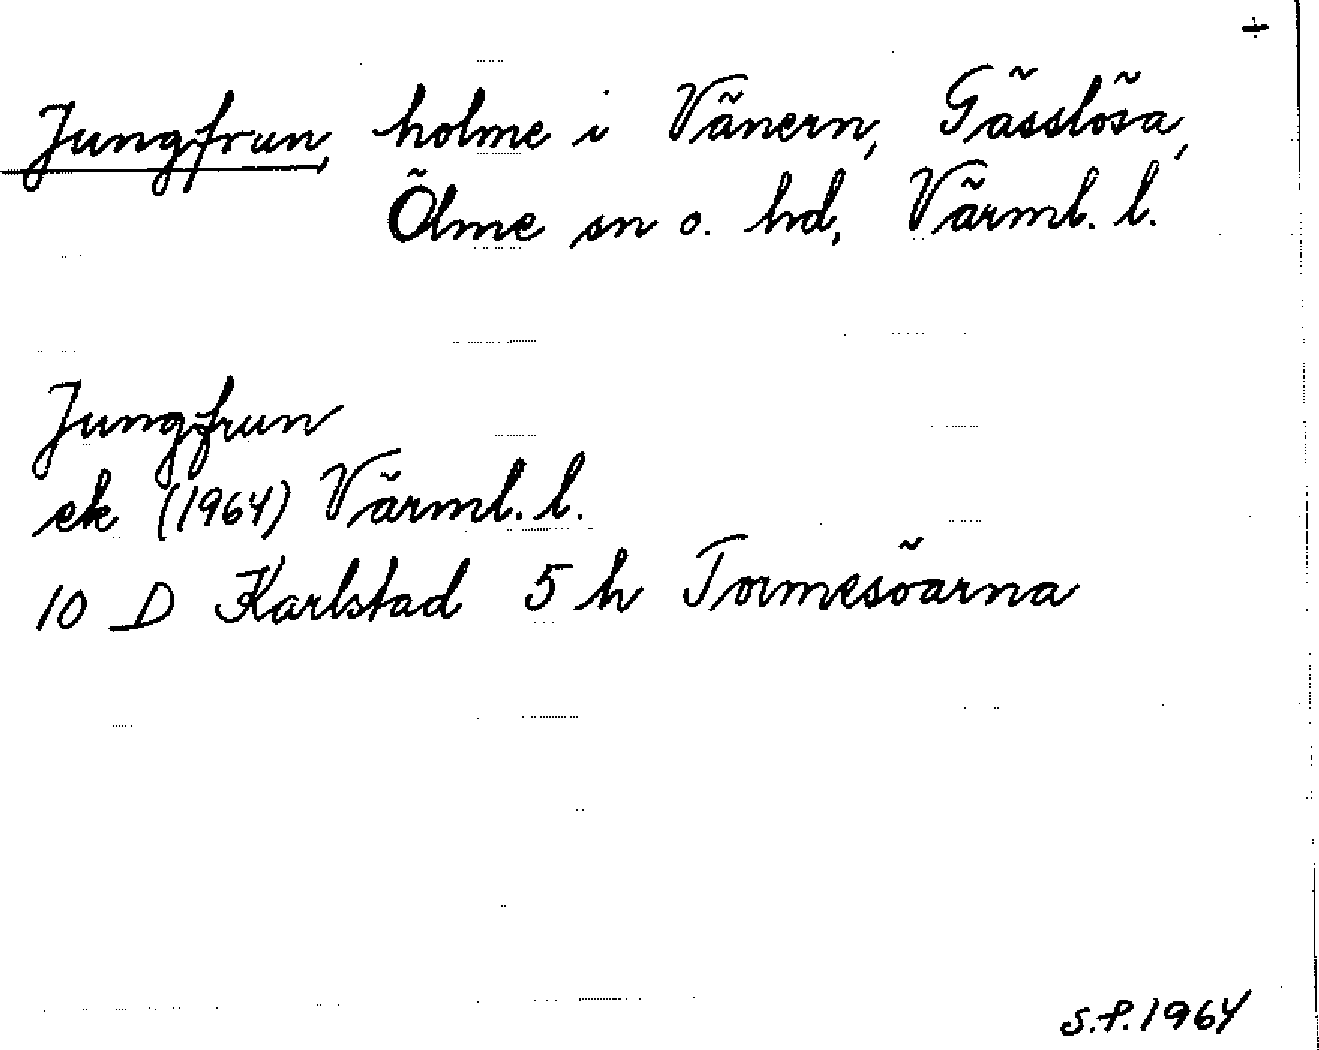 Jungfrun, holme i Vänern, Gässlösa,
Ölme sn o. hd, Värml. l.
Jungfrun
ek (1964) Värml. l.
10 D Karlstad 5 h Tormesöarna
S.P. 1964